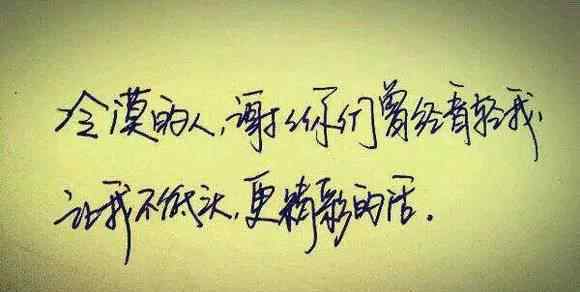 冷漠的人,谢谢你们曾经看轻我,
让我不低头,更精彩的活.